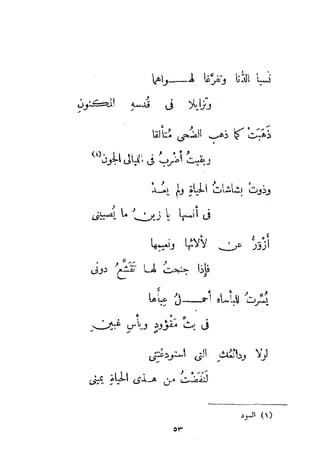 نسيا الدُّنا وتفرَّغا لهـــــواهما
وتزايلا فى قُدسه المكنونِ
ذهَبَتْ كما ذهب الضحى متألقا
وبقيتُ أضربُ فى الليالى الجونِ(١)
وذوت بشاشات الحياة ولم يعــد
فى أنسها يا زينُ ما يُصبينى
أزوَرُّ عن لألائها ونعيمها
فإذا جنحتُ لها تقشَّع دونى
يُسِّرتُ للبأساء أحمـــلُ عبأها
فى بثّ مفؤودٍ ويأس غبين
لولا ودائعُكِ التى استودعتِنى
لنفَضْتُ من هــذى الحياةِ يمينى
(١) السود
٥٣